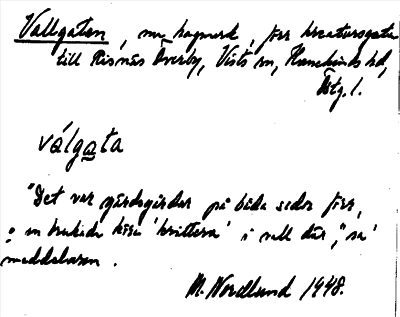 Vallgatan, nu hagmark, förr kreatursgata
till Risnäs Överby, Vists sn, Hanekinds hd,
Östg. l.
válgata
"Det var gärdsgårdar på båda sidor förr,
o en brukade köra 'kritturа' i vall där," sa'
meddelaren.
M. Nordlund 1948.